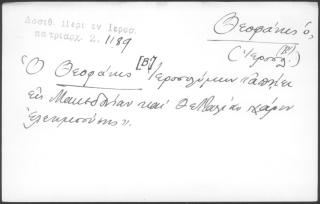 Δοσιθ. Περι εν Ιεροσ.
πατριαρχ. 2. 1189
Θεοφάνης ὁ,
(Ἱεροσολ. [Β'])
"Ὁ Θεοφάνης [Β'] Ἱεροσολύμων ἀπῆλθεν
εἰς Μακεδονίαν καὶ Θετταλίαν χάριν
ἐλεημοσύνης".